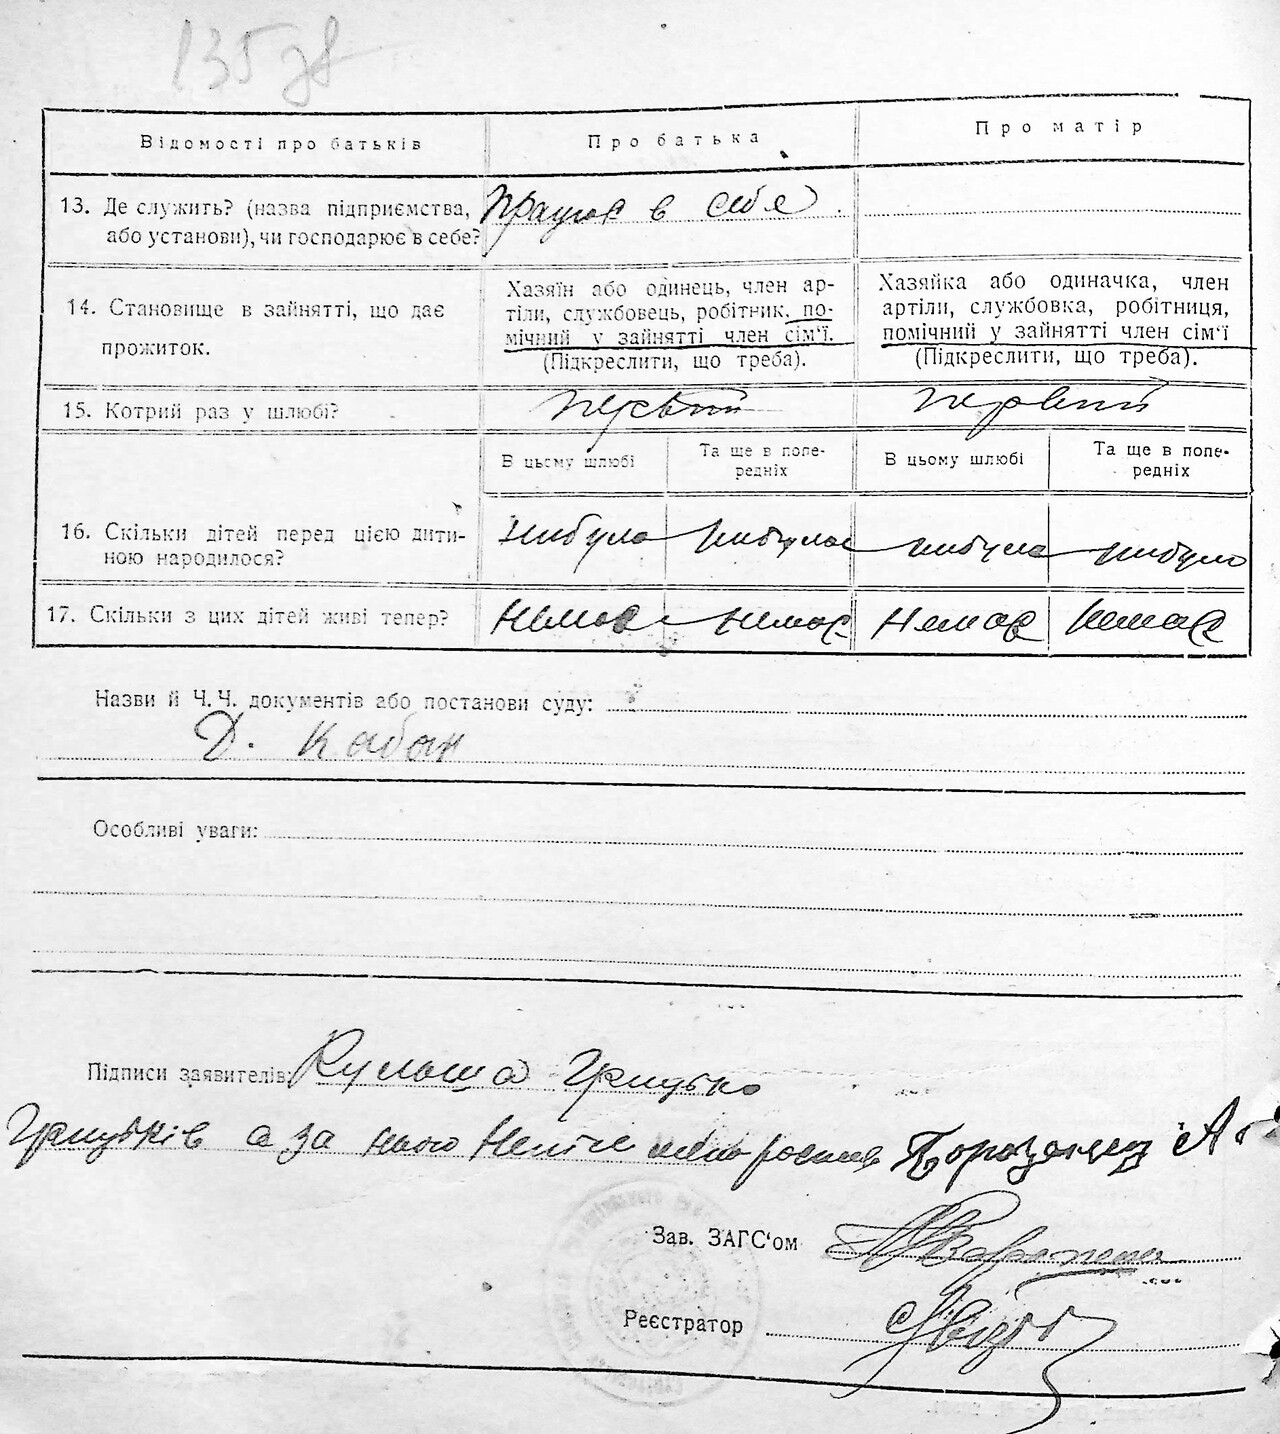 135 зв
Відомості про батьків
Про батька
Про матір
13. Де служить? (назва підприємства,
або установи), чи господарює в себе?
Працює в себе
14. Становище в зайнятті, що дає
прожиток.
Хазяїн або одинець, член ар-
тіли, службовець, робітник, по-
мічний у зайнятті член сім'ї.
(Підкреслити, що треба).
Хазяйка або одиначка, член
артіли, службовка, робітниця,
помічний у зайнятті член сім'ї
(Підкреслити, що треба).
15. Котрий раз у шлюбі?
первий
первий
В цьому шлюбі
Та ще в попе-
редніх
В цьому шлюбі
Та ще в попе-
редніх
16. Скільки дітей перед цією дити-
ною народилося?
нибуло
нибуло
нибуло
нибуло
17. Скільки з цих дітей живі тепер?
Немає
немає
Немає
Немає
Назви й Ч.Ч. документів або постанови суду:
Д. Кабан
Особливі уваги:
Підписи заявителів:
Кульша Грицько
Грицьків а за нього
Зав. ЗАГС'ом
Реєстратор